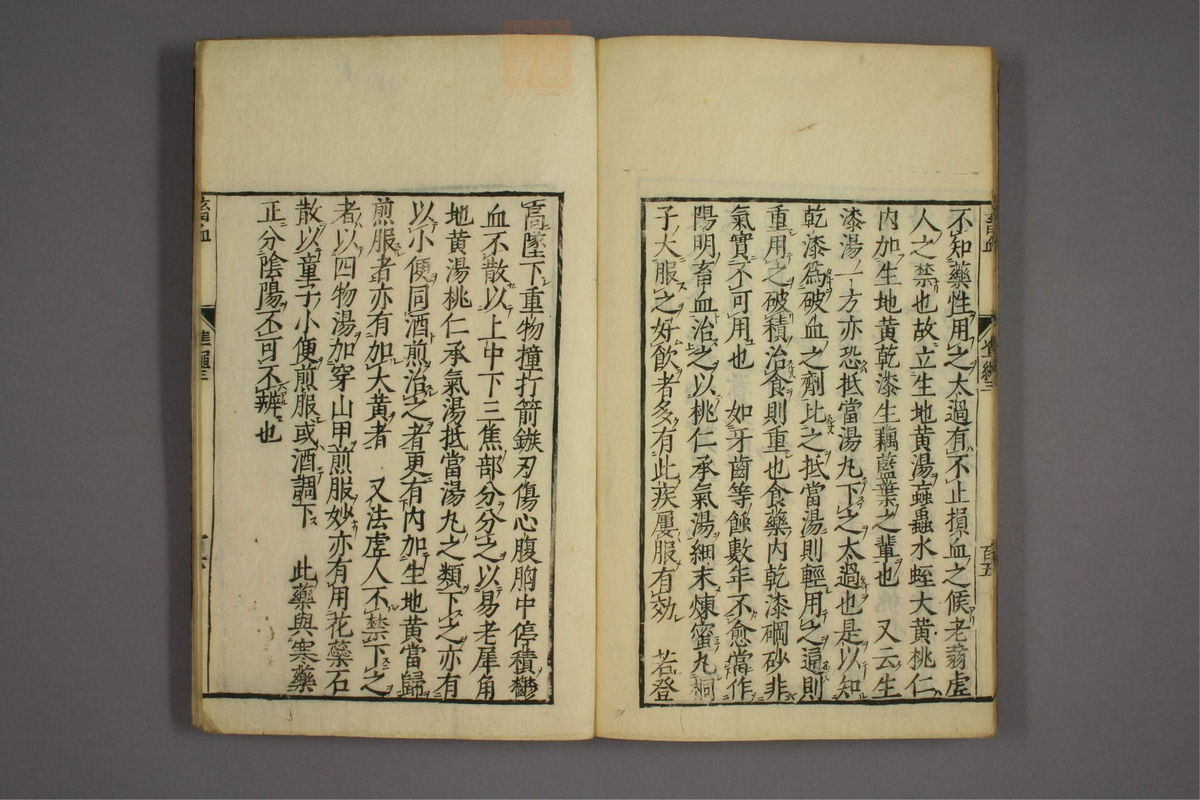 不知藥性用之太過有不止損血之候老翁虛
人之禁也故立生地黄湯蝱蟲水蛭大黄桃仁
内加生地黄乾漆生藕藍葉之輩也　又云生
漆湯一方亦恐抵當湯丸下之太過也是以知
乾漆爲破血之劑比之抵當湯則輕用之通則
重用之破積治食則重也食藥内乾漆硇砂非
氣實不可用也　如牙齒等蝕數年不愈當作
陽明畜血治之以桃仁承氣湯細末煉蜜丸桐
子大服之好飲者多有此疾屢服有効　若登
高墜下重物撞打箭鏃刃傷心腹胸中停積鬱
血不散以上中下三焦部分分之以易老犀角
地黄湯桃仁承氣湯抵當湯丸之類下之亦有
以小便同酒煎治之者更有内加生地黄當歸
煎服者亦有加大黄者　又法虛人不禁下之
者以四物湯加穿山甲煎服妙亦有用花蘂石
散以童子小便煎服或酒調下　此藥與寒藥
正分陰陽不可不辨也